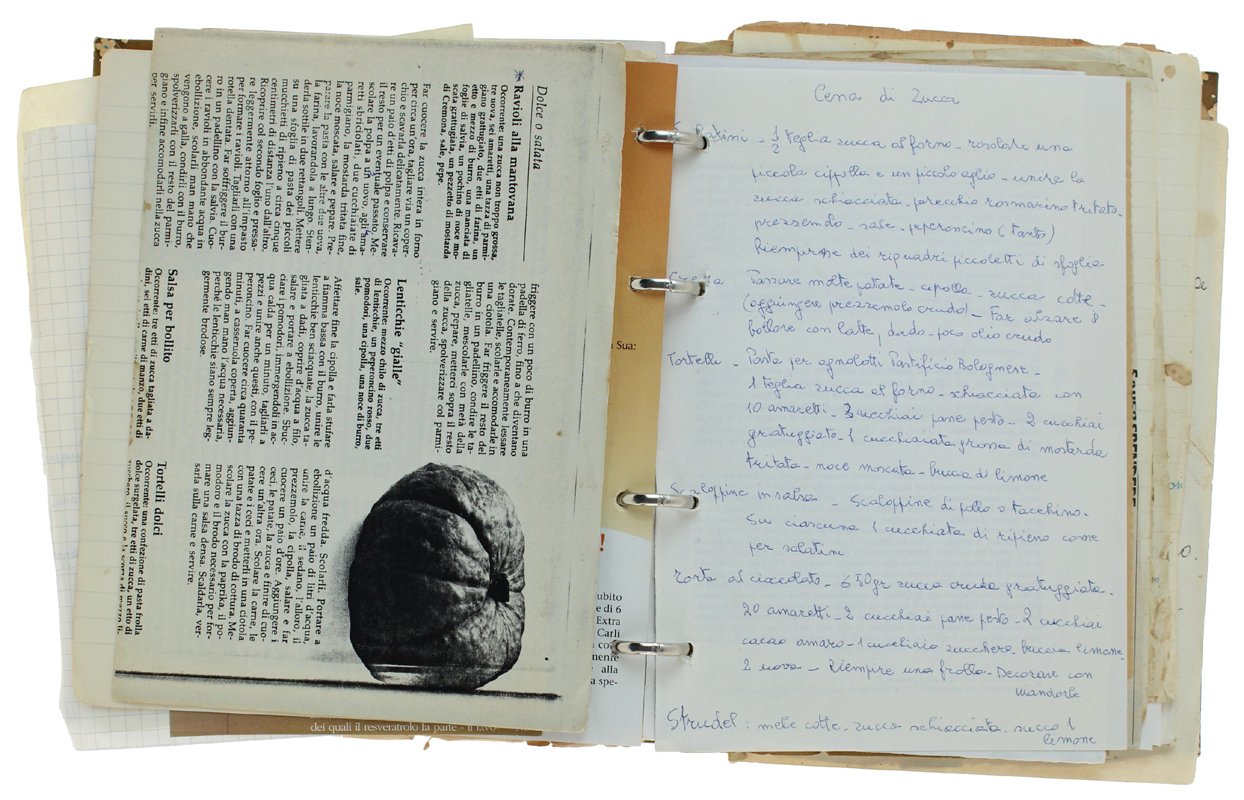 Dolce o salata
* Ravioli alla mantovana
Occorrente: una zucca non troppo grossa,
tre uova, sei amaretti, una tazza di parmi-
giano grattugiato, due etti di farina, un
etto e mezzo di burro, una manciata di
foglie di salvia, un pochino di noce mo-
scata grattugiata, un pezzetto di mostarda
di Cremona, sale, pepe.
Far cuocere la zucca intera in forno
per circa un'ora, tagliare via un coper-
chio e scavarla delicatamente. Ricava-
re un paio d'etti di polpa e conservare
il resto per un eventuale passato. Me-
scolare la polpa a un uovo, agli ama-
retti sbriciolati, due cucchiaiate di
parmigiano, la mostarda tritata fine,
la noce moscata, salare e pepare. Pre-
parare la pasta con le altre due uova,
la farina, lavorandola a lungo. Sten-
derla sottile in due rettangoli. Mettere
su una sfoglia di pasta dei piccoli
mucchietti di ripieno a circa cinque
centimetri di distanza l'uno dall'altro.
Ricoprire col secondo foglio e pressa-
re leggermente attorno all'impasto
per formare i ravioli. Tagliarli con una
rotella dentata. Far soffriggere il bur-
ro in un padellino con la salvia. Cuo-
cere i ravioli in abbondante acqua in
ebollizione, scolarli man mano che
vengono a galla, condirli con il burro,
spolverizzarli con il resto del parmi-
giano e infine accomodarli nella zucca
per servirli.
friggere con un poco di burro in una
padella di ferro, fino a che diventano
dorate. Contemporaneamente lessare
le tagliatelle, scolarle e accomodarle in
una ciotola. Far friggere il resto del
burro in un padellino, condire le ta-
gliatelle, mescolarle con metà della
zucca, pepare, metterci sopra il resto
della zucca, spolverizzare col parmi-
giano e servire.
Lenticchie "gialle"
Occorrente: mezzo chilo di zucca, tre etti
di lenticchie, un peperoncino rosso, due
pomodori, una cipolla, una noce di burro,
sale.
Affettare fine la cipolla e farla stufare
a fiamma bassa con il burro, unire le
lenticchie ben sciacquate, la zucca ta-
gliata a dadi, coprire d'acqua a filo,
salare e portare a ebollizione. Sbuc-
ciare i pomodori immergendoli in ac-
qua calda per un minuto, tagliarli a
pezzi e unire anche questi, con il pe-
peroncino. Far cuocere circa quaranta
minuti, a casseruola coperta, aggiun-
gendo man mano acqua necessaria,
perché le lenticchie siano sempre leg-
germente brodose.
Salsa per bollito
Occorrente: tre etti di zucca tagliata a da-
dini, sei etti di carne di manzo, due etti di
d'acqua fredda. Scolarli. Portare a
ebollizione un paio di litri d'acqua,
unire la carne, il sedano, l'alloro, il
prezzemolo, la cipolla, salare e far
cuocere un paio d'ore. Aggiungere i
ceci, le patate, la zucca e finire di cuo-
cere un'altra ora. Scolare la carne, le
patate e i ceci e metterli in una ciotola
con una tazza di brodo di cottura. Me-
scolare la zucca con la paprika, il po-
modoro e il brodo necessario per for-
mare una salsa densa. Scaldarla, ver-
sarla sulla carne e servire.
Tortelli dolci
Occorrente: una confezione di pasta frolla
dolce surgelata, tre etti di zucca, un etto di
dei quali il resveratrolo la parte - il
Sua:
!
ubito
e di 6
Extra
Carli
nente
alla
a spe-
Cena di Zucca
Salatini - ½ teglia zucca al forno - rosolare una
piccola cipolla e un piccolo aglio - unire la
zucca schiacciata - parecchio rosmarino tritato -
prezzemolo - sale - peperoncino (tanto)
Riempirne dei riquadri piccoletti di sfoglia
Crema Passare molte patate - cipolla - zucca cotte -
(aggiungere prezzemolo crudo) - Far alzare il
bollore con latte, dado - poco olio crudo
Tortelli - Pasta per agnolotti Pastificio Bolognese -
1 teglia zucca al forno - schiacciata con
10 amaretti - 3 cucchiai pane pesto - 2 cucchiai
grattuggiato - 1 cucchiaiata grossa di mostarda
tritata - noce moscata - buccia di limone
Scaloppine in salsa - Scaloppine di pollo o tacchino -
Su ciascuna 1 cucchiaiata di ripieno come
per salatini
Torta al cioccolato - 650 gr zucca cruda grattuggiata -
20 amaretti - 2 cucchiai pane pesto - 2 cucchiai
cacao amaro - 1 cucchiaio zucchero - buccia limone -
2 uova - Riempire una frolla - Decorare con
mandorle
Strudel: mele cotte - zucca schiacciata - succo 1
limone